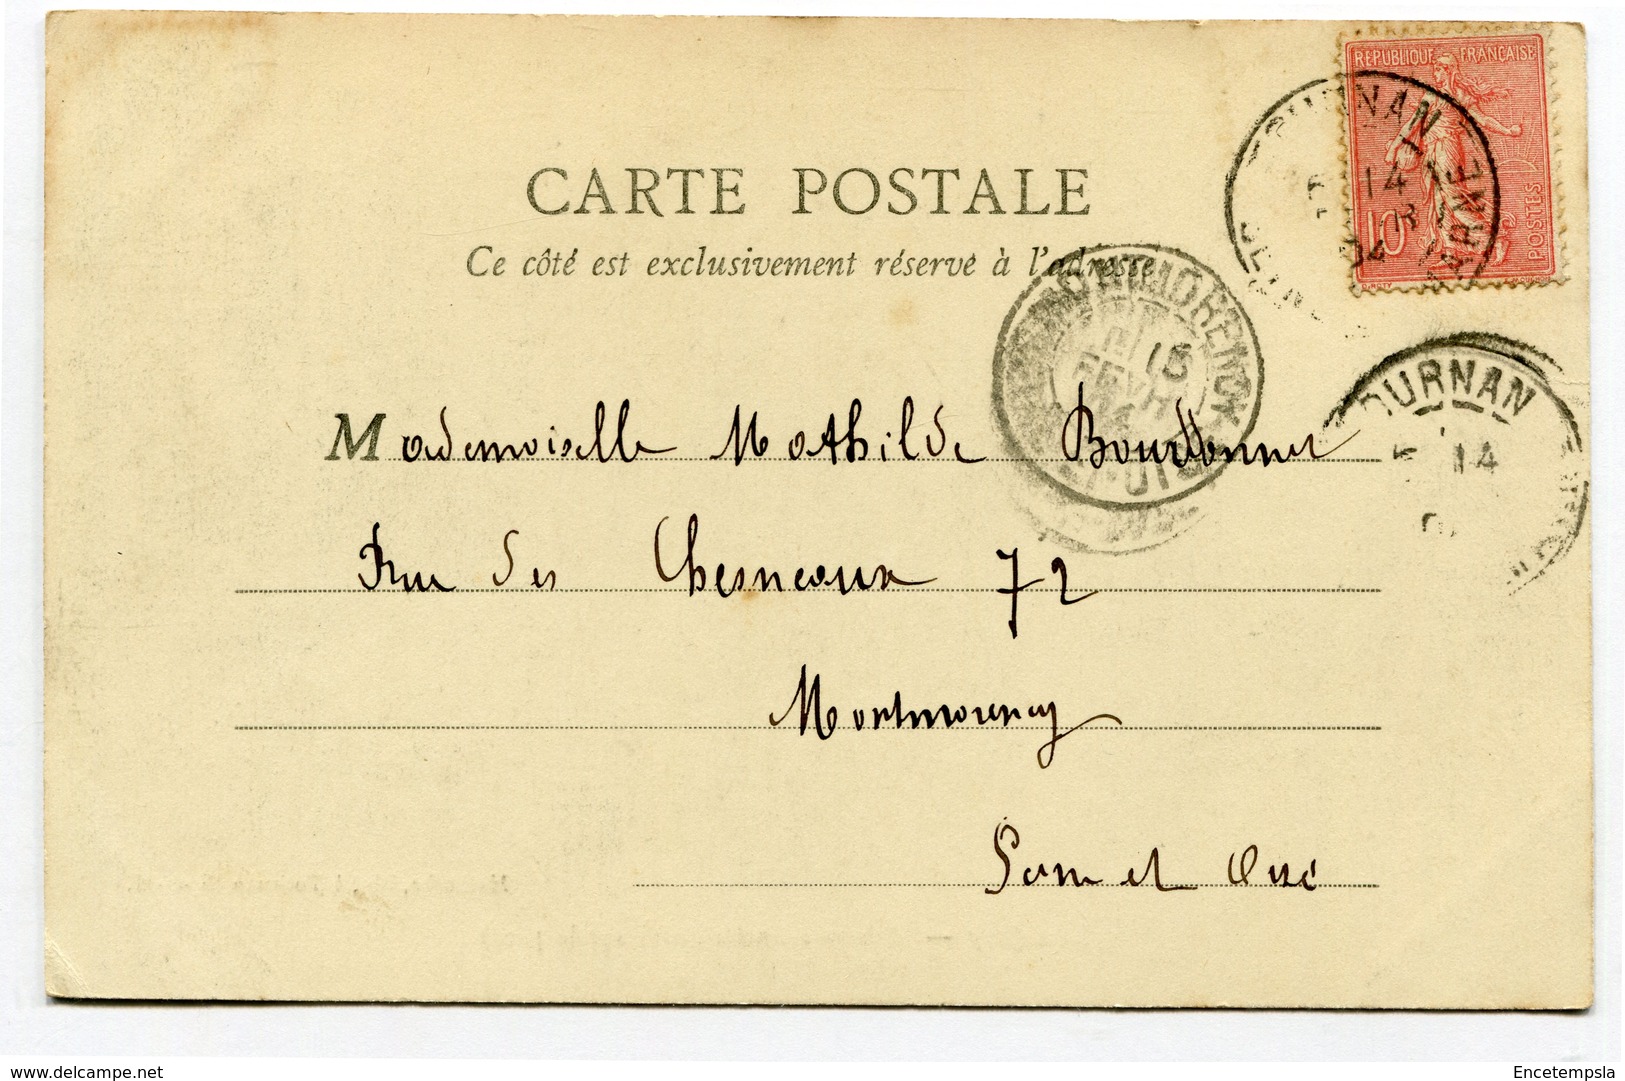 REPUBLIQUE FRANÇAISE
10
POSTES
OURNAN
14
MARNE
CARTE POSTALE
Ce côté est exclusivement réservé à l'adresse
MONTMORENCY
15
FEVR
OURNAN
14
Mademoiselle Mathilde Bourdonnet
Rue des Chesneaux 72
Montmorency
Seine et Oise
www.delcampe.net
Encetempsla